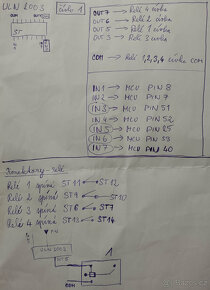 ULN 2003
číslo 1
OUT 7 → Relé 4 cívka
OUT 6 → Relé 2 cívka
OUT 5 → Relé 1 cívka
OUT 3 → Relé 3 cívka
ST
COM → Relé 1,2,3,4 cívka COM
IN1 → MCU PIN 8
IN2 → MCU PIN 7
IN3 → MCU PIN 51
IN4 → MCU PIN 52
IN5 → MCU PIN 25
IN6 → MCU PIN 53
IN7 → MCU PIN 40
relé
Relé 1 spíná ST11 ST12
Relé 2 spíná ST9 ST10
Relé 3 spíná ST6 ST7
Relé 4 spíná ST13 ST14
PIN
ULN 2003
1
COM